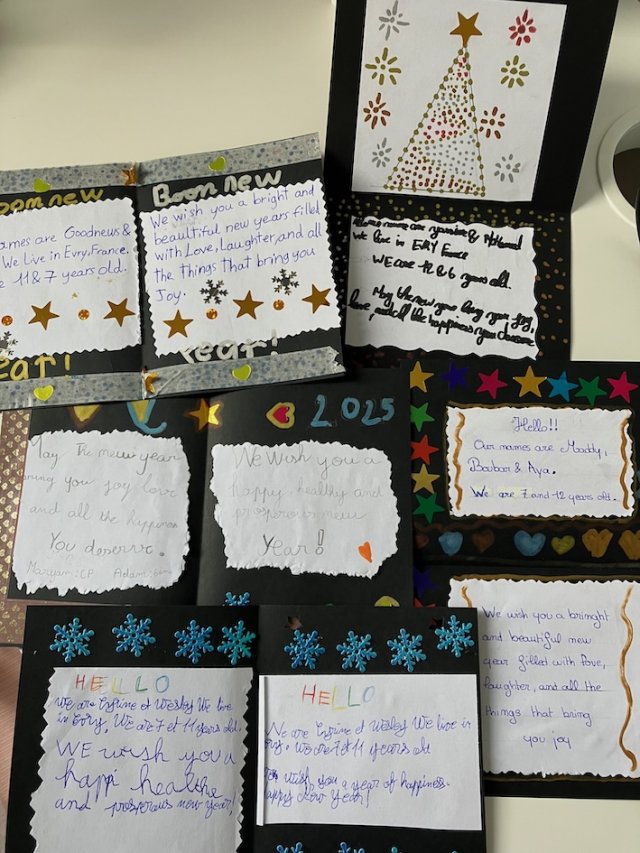 oom new
ames are Goodness &
We live in Evry, France.
11 & 7 years old.
ear!
Boom new
We wish you a bright and
beautiful new years filled
with Love, Laughter, and all
the things that bring you
Joy.
year!
names are
we live in EVRY France
WE are 12 & 6 years old.
May the new year bring you joy,
love, and all the happiness you deserve
May the new year
bring you joy love
and all the happiness
You deserve.
Maryam: CP Adam:
2025
We wish you a
happy, healthy and
prosperous new
year!
Hello!!
Our names are Maddy,
Boubou & Aya.
We are 7 and 12 years old.
We wish you a brimght
and beautiful new
year filled with love,
laughter, and all the
things that bring
you joy
HELLO
We are et Wesley We live
in Evry. We are 7 et 11 years old.
WE wish you a
happi healthe
and prosperous new year!
HELLO
We are et Wesley We live in
Evry. We are 7 et 11 years old
We wish you a year of happiness.
happy New Year!